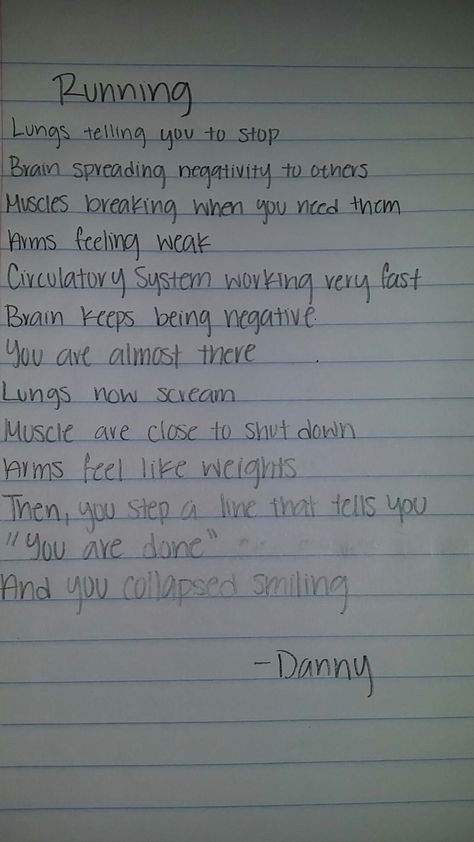 Running
Lungs telling you to stop
Brain spreading negativity to others
Muscles breaking when you need them
Arms feeling weak
Circulatory System working very fast
Brain keeps being negative.
You are almost there
Lungs now scream
Muscle are close to shut down
Arms feel like weights
Then, you step a line that tells you
"You are done"
And you collapsed smiling
-Danny